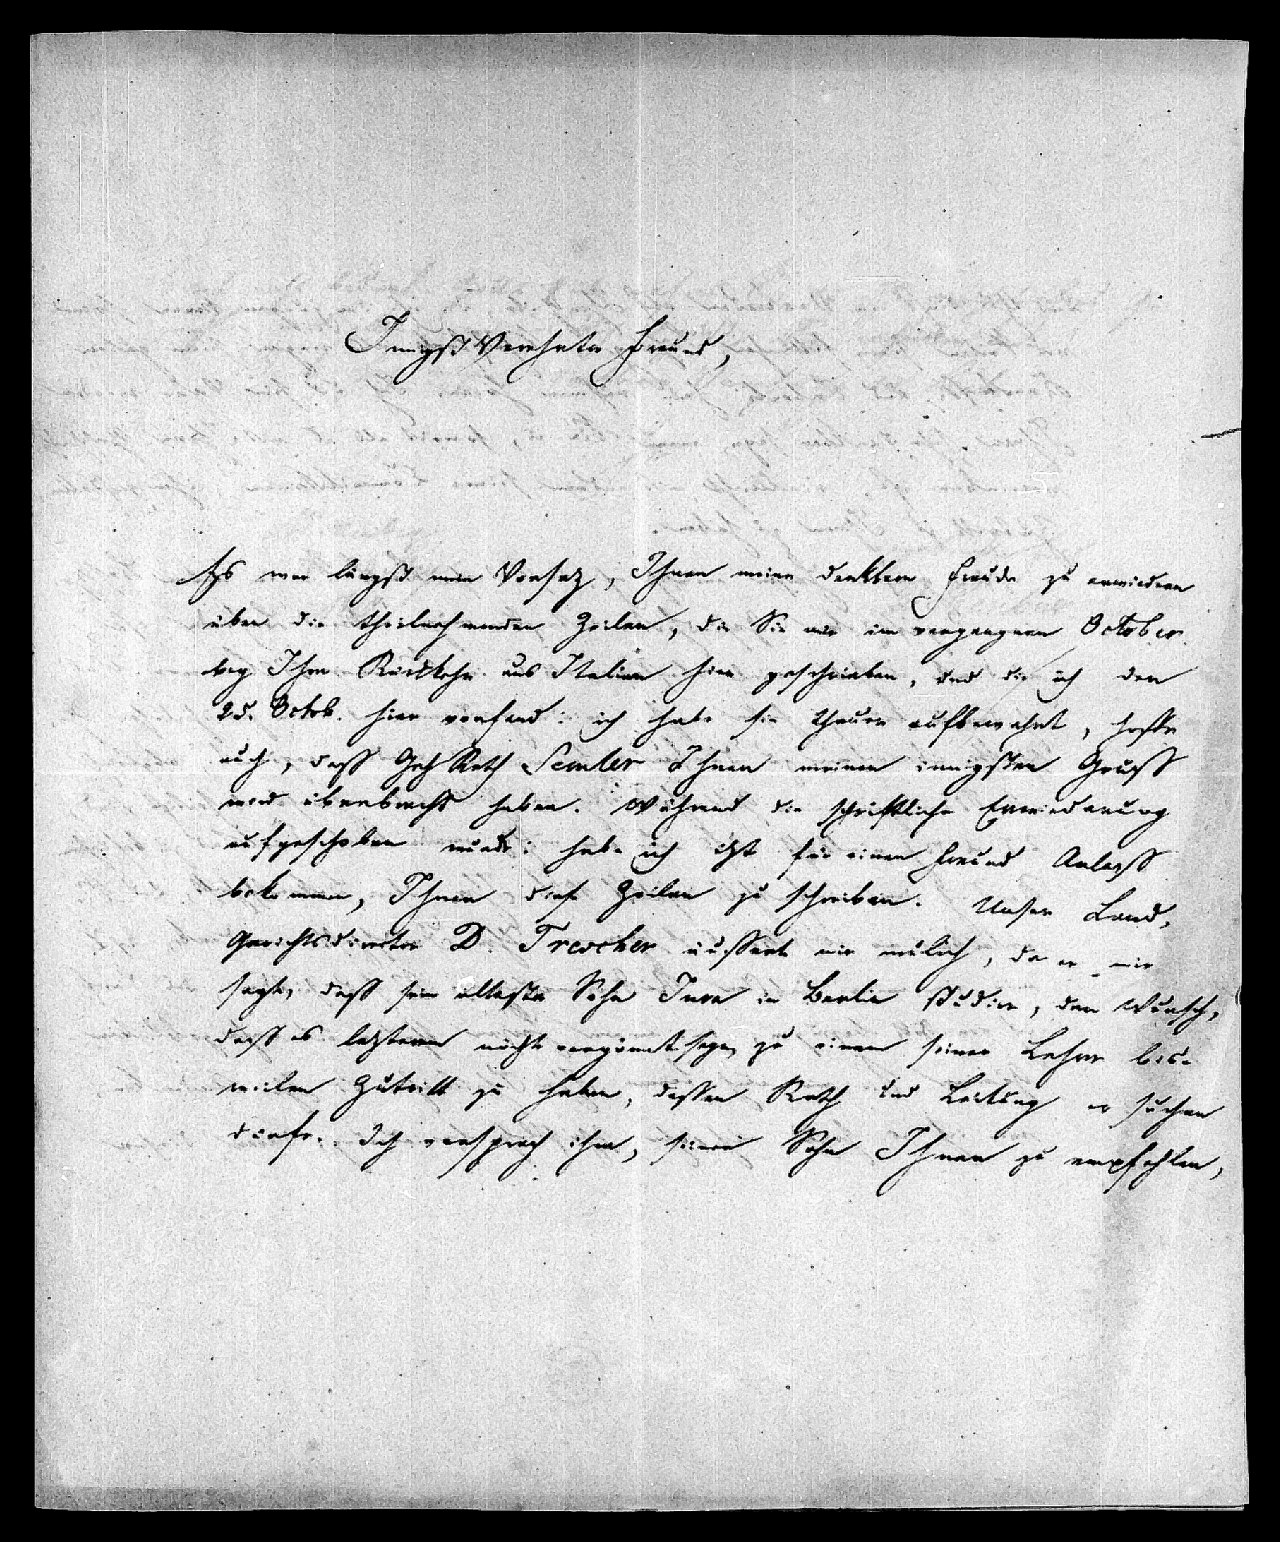 Innigst Verehrter Freund,
Es war längst mein Vorsatz, Ihnen meine dankbare Freude zu erwiedern
über die theilnehmenden Zeilen, die Sie mir im vergangenen October
bey Ihrer Rückkehr aus Italien hier geschrieben, und die ich den
25. Octob. hier vorfand: ich habe sie theuer aufbewahrt, hoffe
auch, dass Geh Rath Semler Ihnen meinen innigsten Gruss
wird überbracht haben. Während die schriftliche Erwiederung
aufgeschoben wurde: habe ich itzt für einen Freund Anlass
bekommen, Ihnen diese Zeilen zu schreiben. Unser Land,
Gerichtsdirector D. Trescher äusserte mir neulich, da er mir
sagte, dass sein ältester Sohn Iura in Berlin studire, den Wunsch,
dass es letzterem möchte vergönnt seyn, zu einem seiner Lehrer bis-
weilen Zutritt zu haben, dessen Rath und Leitung er suchen
dürfe. Ich versprach ihm, seinen Sohn Ihnen zu empfehlen,